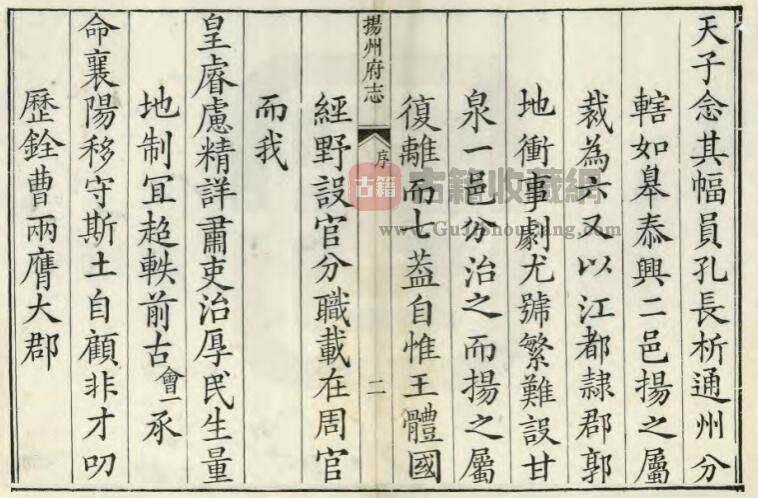 天子念其幅員孔長析通州分
轄如皋泰興二邑揚之屬
裁為六又以江都隸郡郭
地衝事劇尤號繁難設甘
泉一邑分治之而揚之屬
復離而七蓋自惟王體國
揚州府志
序
二
經野設官分職載在周官
而我
皇睿慮精詳肅吏治厚民生量
地制冝超軼前古會一承
命襄陽移守斯土自顧非才叨
歷銓曹兩膺大郡
古籍
古籍收藏網
www.GuJiShouCang.com